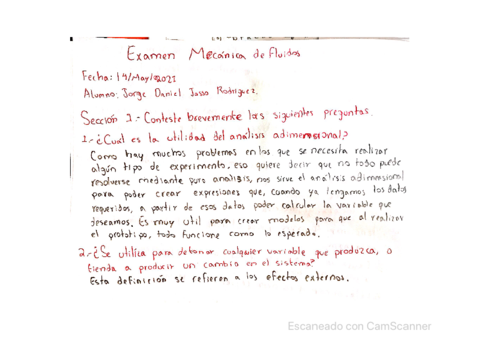 Examen Mecánica de Fluidos
Fecha: 14/May/2021
Alumno: Jorge Daniel Jasso Rodriguez.
Sección 1.- Conteste brevemente las siguientes preguntas.
1.- ¿Cual es la utilidad del análisis adimensional?
Como hay muchos problemas en los que se necesita realizar
algún tipo de experimento, eso quiere decir que no todo puede
resolverse mediante puro analisis, nos sirve el análisis adimensional
para poder crear expresiones que, cuando ya tengamos los datos
requeridos, a partir de esos datos poder calcular la variable que
deseamos. Es muy util para crear modelos para que al realizar
el prototipo, todo funcione como lo esperado.
2.- ¿Se utiliza para detonar cualquier variable que produzca, o
tienda a producir un cambio en el sistema?
Esta definición se refieren a los efectos externos.
Escaneado con CamScanner